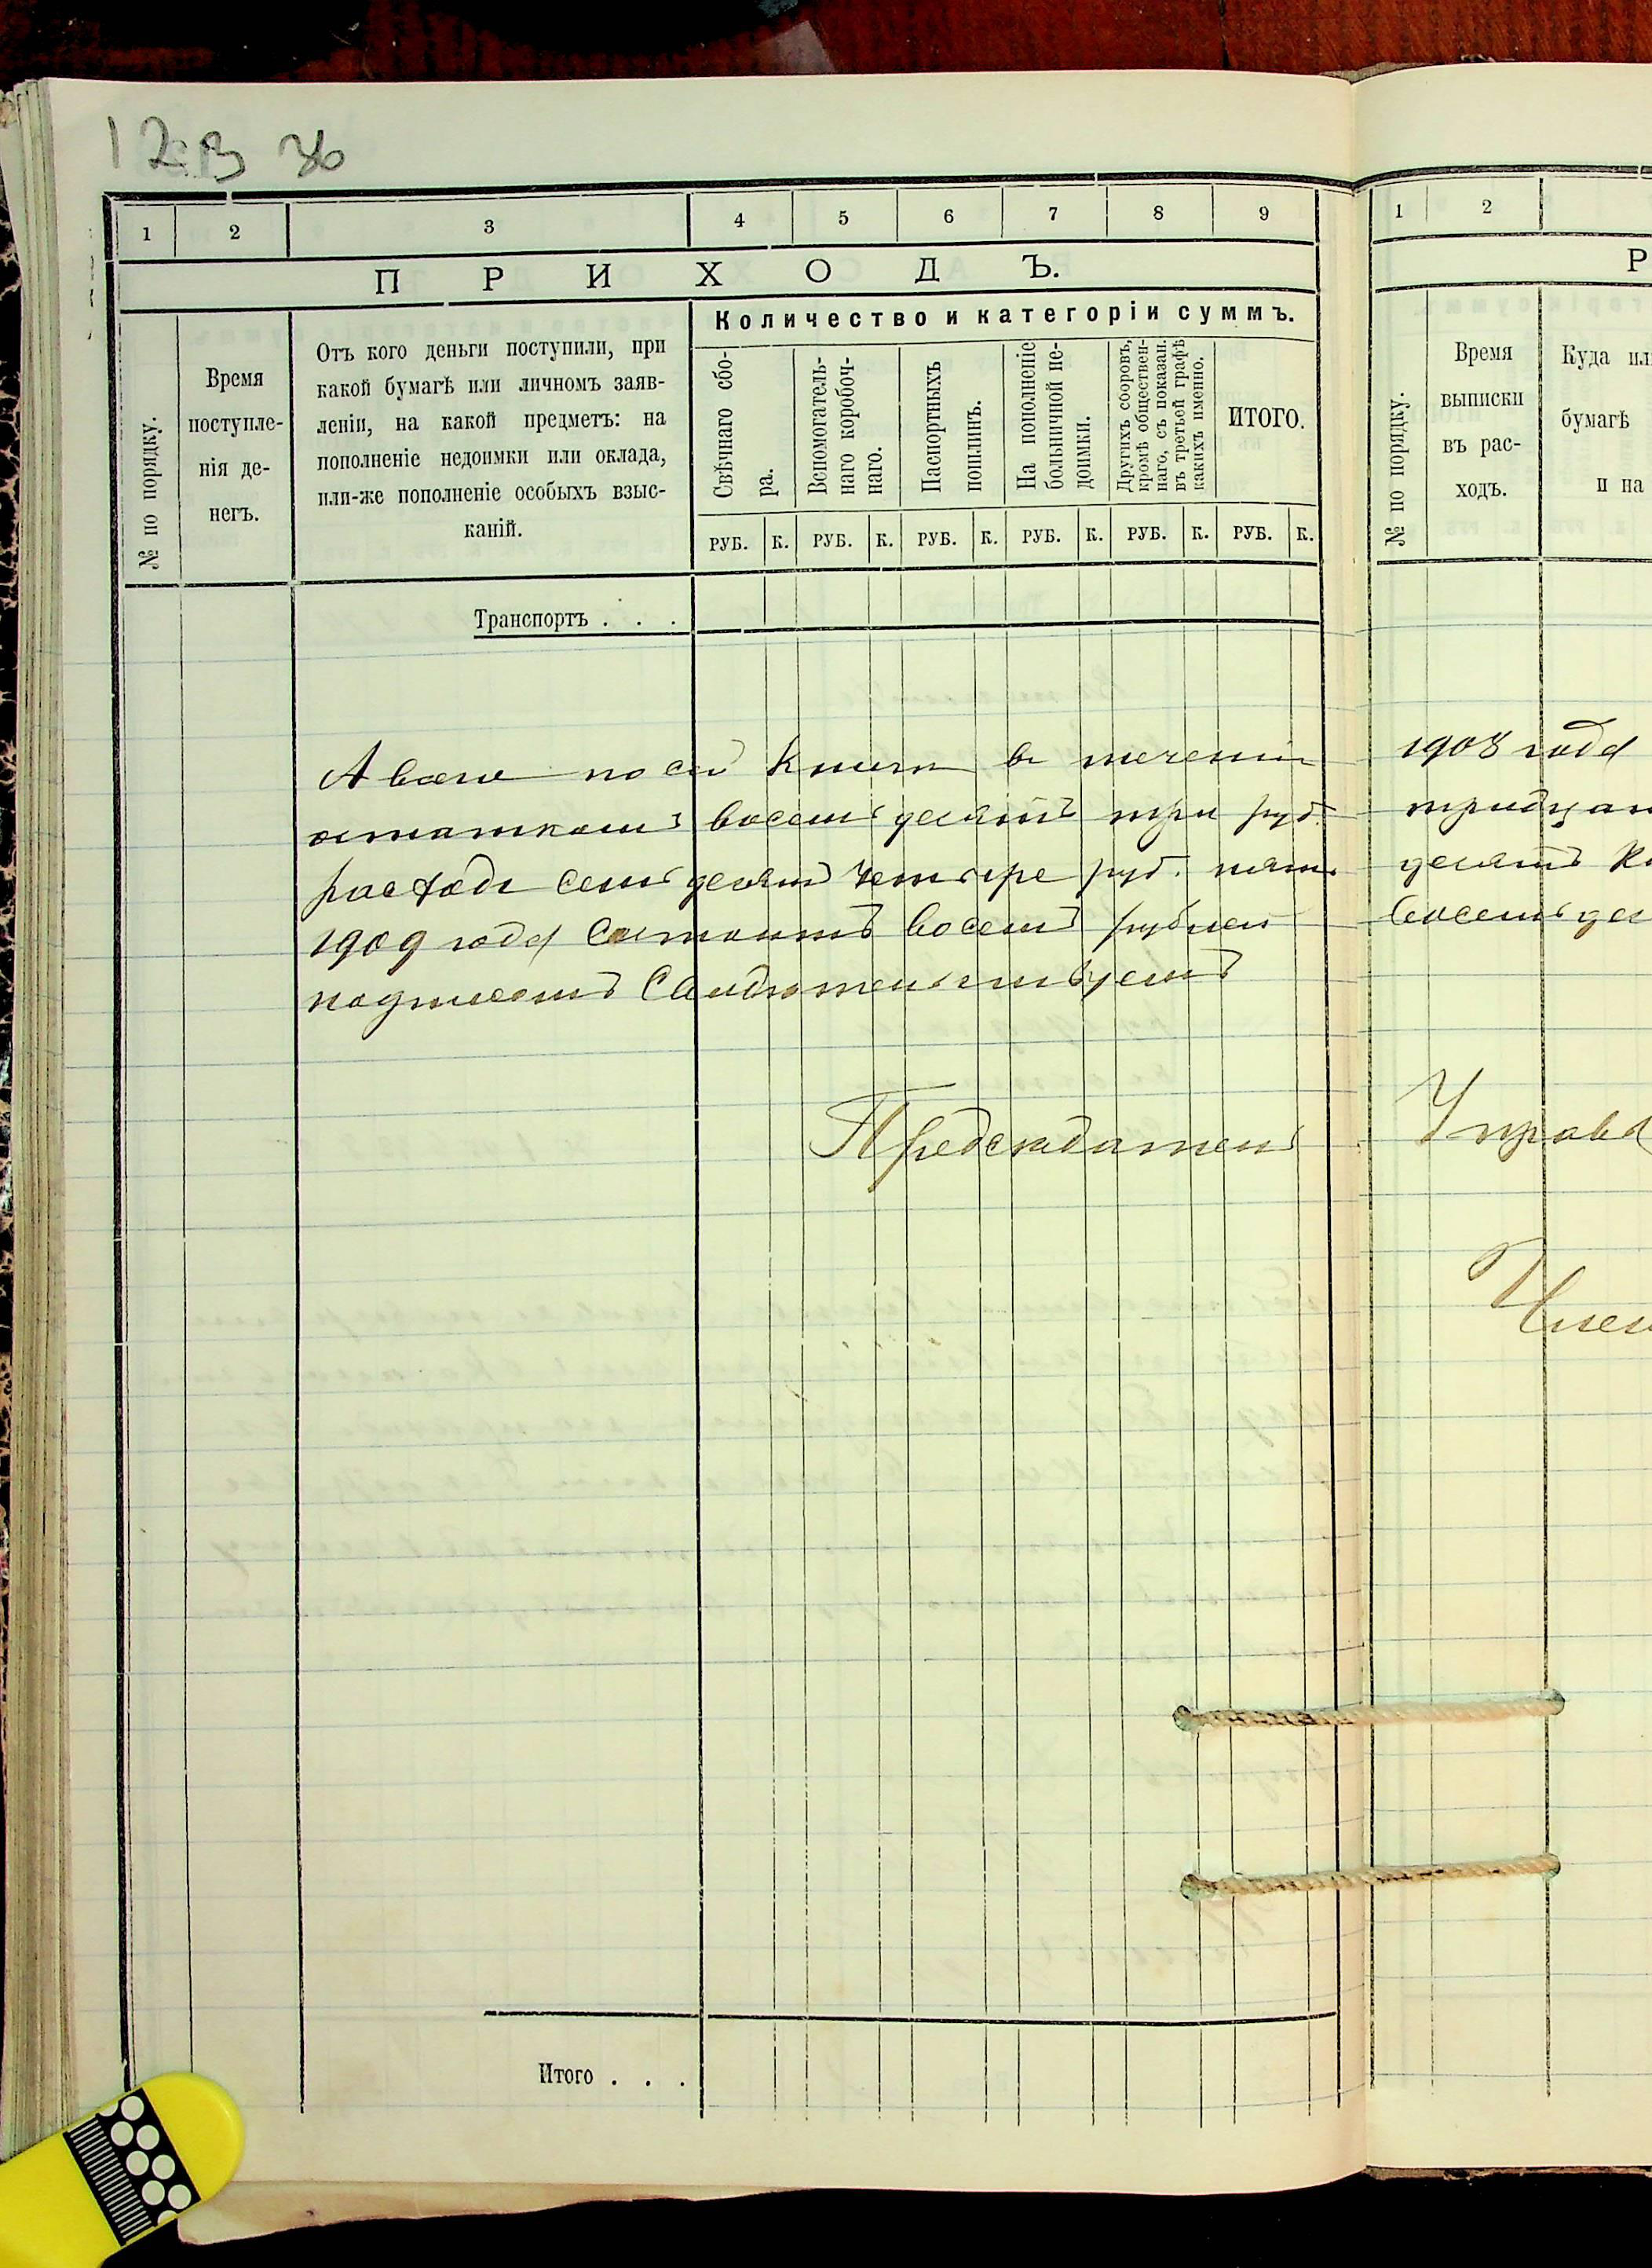 12 В 36
1 2 3 4 5 6 7 8 9
ПРИХОДЪ.
№ по порядку.
Время
поступле-
нія де-
негъ.
Отъ кого деньги поступили, при
какой бумагѣ или личномъ заяв-
леніи, на какой предметъ: на
пополненіе недоимки или оклада,
или-же пополненіе особыхъ взыс-
каній.
Количество и категоріи суммъ.
Свѣчнаго сбо-
ра.
Вспомогатель-
наго коробоч-
наго.
Паспортныхъ
пошлинъ.
На пополненіе
больничной не-
доимки.
Другихъ сборовъ,
кромѣ обществен-
наго, съ показан.
въ третьей графѣ
какихъ именно.
ИТОГО.
РУБ. К. РУБ. К. РУБ. К. РУБ. К. РУБ. К. РУБ. К.
Транспортъ . . .
А всего по сей книги въ теченіи
остаткомъ восемьдесятъ три руб.
расходъ семьдесятъ четыре руб. пять
1909 года состоитъ восемь рублей
подписомъ свидѣтельствуемъ
Предсѣдатель
Итого . . .
1 2
Р
№ по порядку.
Время
выписки
въ рас-
ходъ.
Куда ил
бумагѣ
и на
1908 года
тридцат
десятъ к
восемьдес
Управа
Член